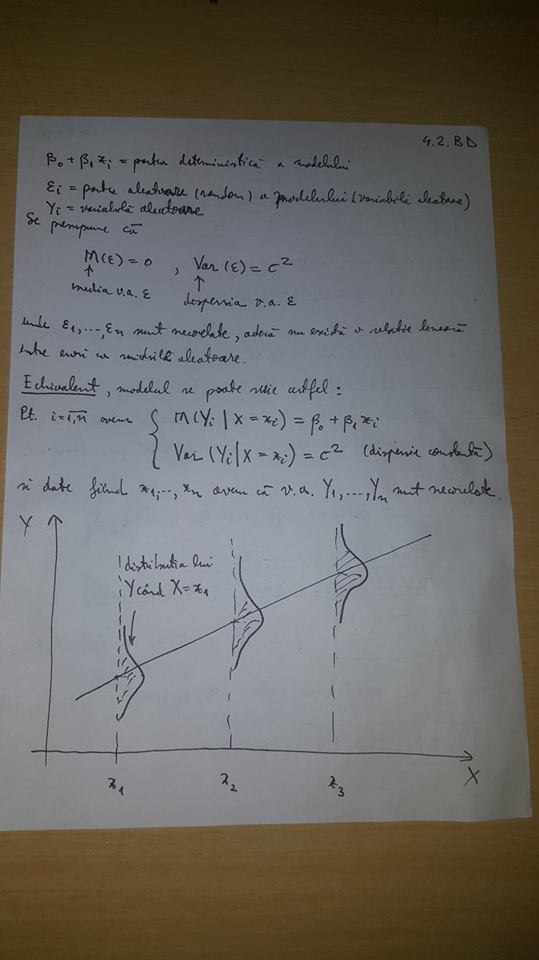 4.2. BD
β₀ + β₁ xᵢ = partea deterministică a modelului
εᵢ = partea aleatoare (random) a modelului (variabilă aleatoare)
Yᵢ = variabilă aleatoare
Se presupune că
M(ε) = 0 , Var(ε) = σ²
↑ ↑
media v.a. ε dispersia v.a. ε
unde ε₁,...,εₙ sunt necorelate, adică nu există o relație lineară
între erori ca mărimi aleatoare.
Echivalent, modelul se poate scrie astfel :
Pt. i=1,n avem { M(Yᵢ | X = xᵢ) = β₀ + β₁ xᵢ
Var(Yᵢ | X = xᵢ) = σ² (dispersie constantă)
si date fiind x₁,..,xₙ avem că v.a. Y₁,...,Yₙ sunt necorelate.
Y
distributia lui
Y când X = x₁
x₁ x₂ x₃
X